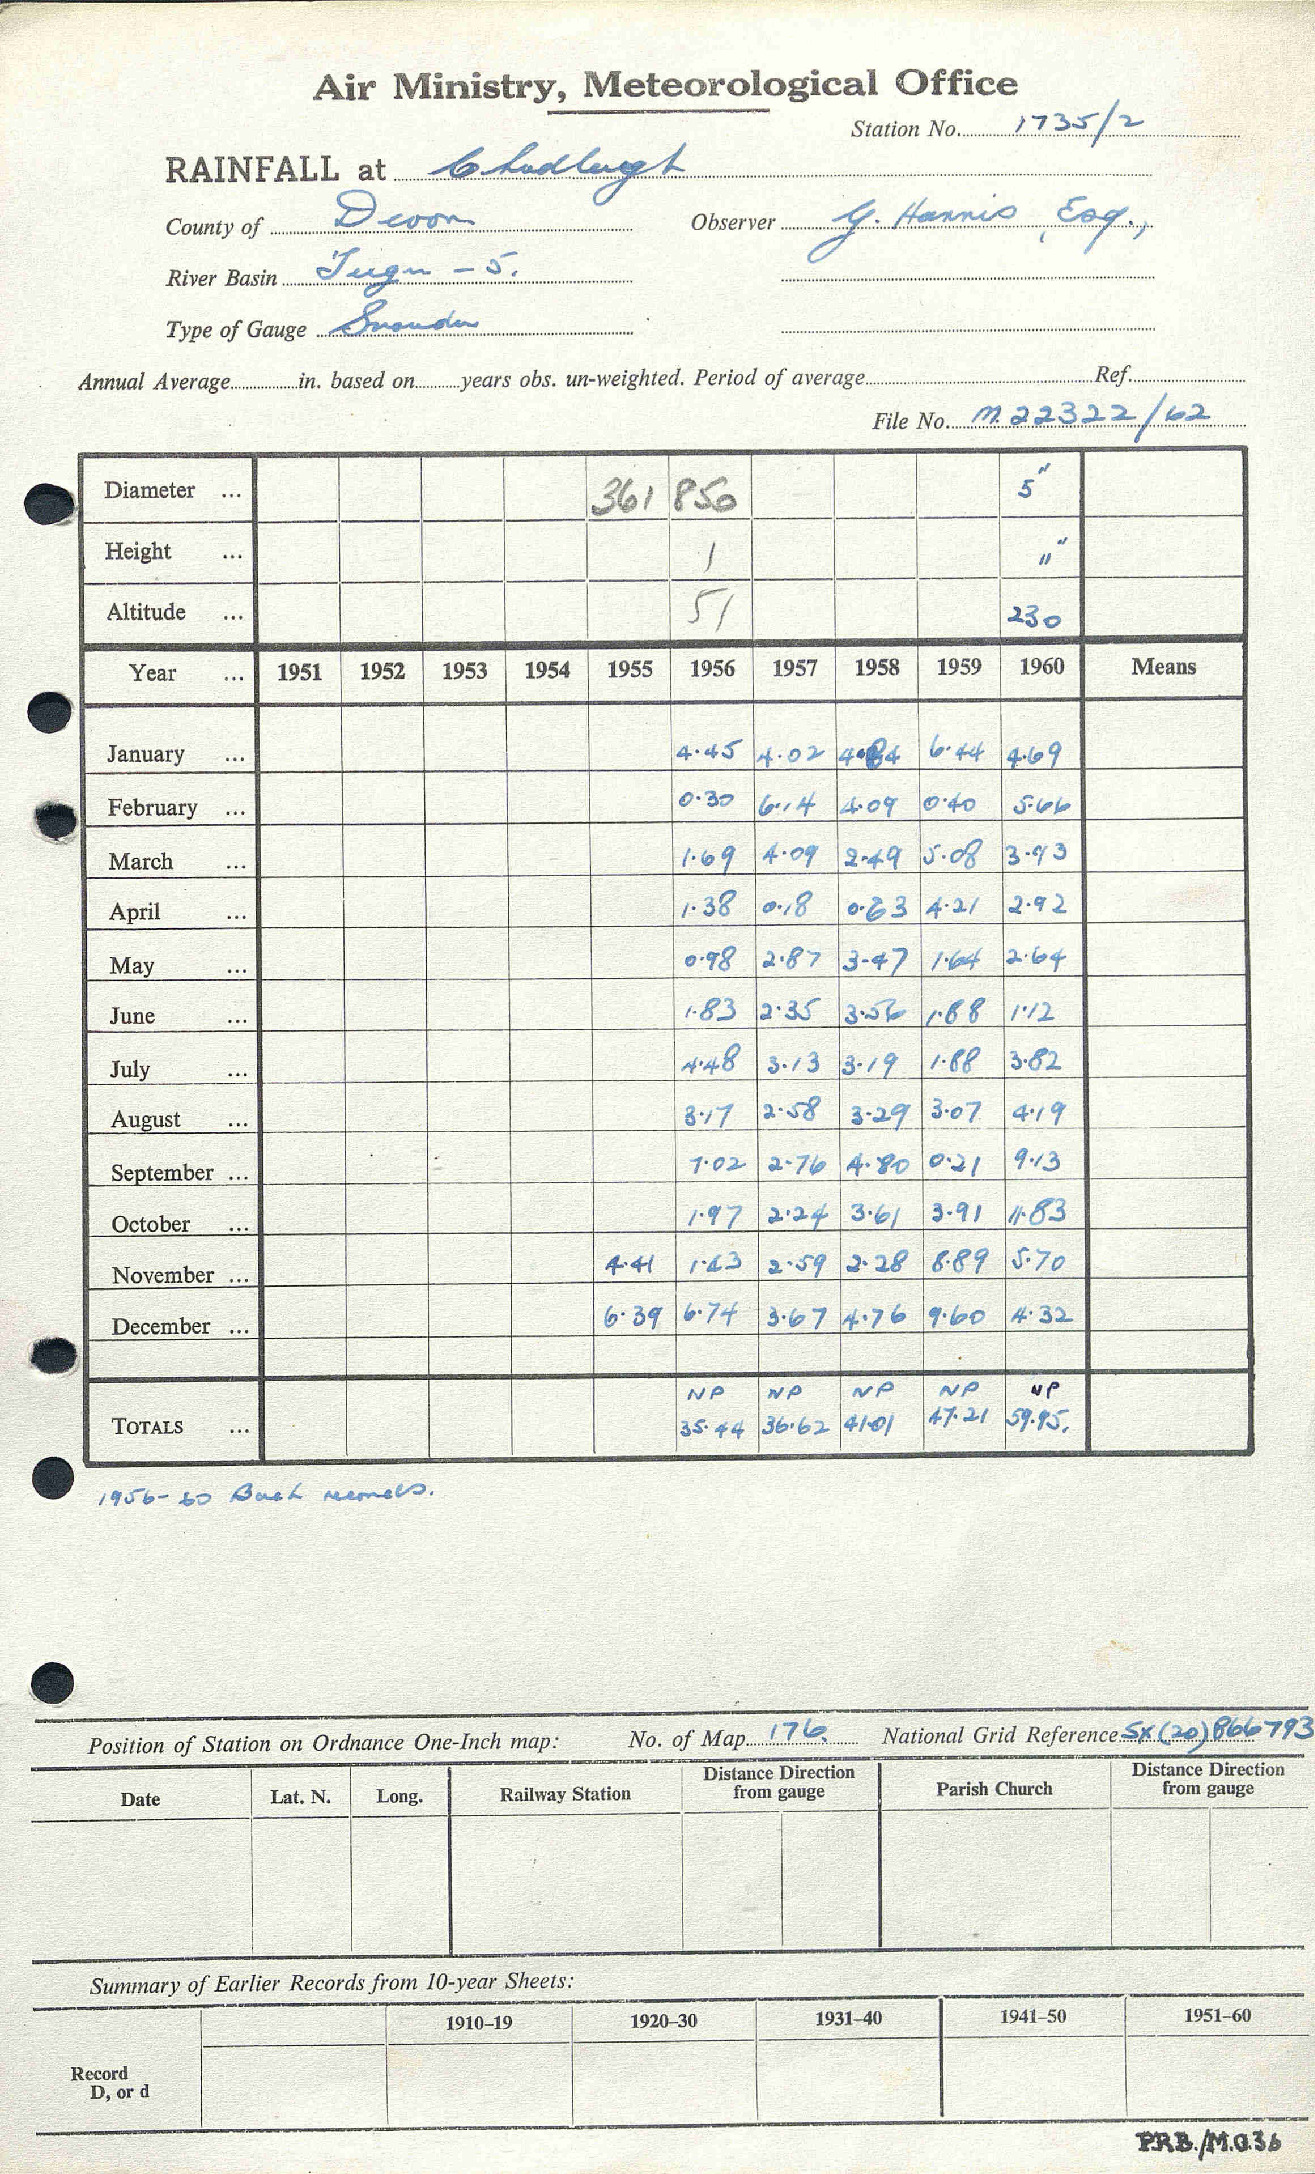 Air Ministry, Meteorological Office
Station No. 1735/2
RAINFALL at Chudleigh
County of Devon Observer G. Hannis, Esq.,
River Basin Teign - 5.
Type of Gauge Snowdon
Annual Average in. based on years obs. un-weighted. Period of average Ref.
File No. M.22322/62
Diameter ... 361 850 5"
Height ... 1 11"
Altitude ... 51 230
Year ... 1951 1952 1953 1954 1955 1956 1957 1958 1959 1960 Means
January ... 4.45 4.02 4.84 6.44 4.69
February ... 0.30 6.14 4.09 0.40 5.66
March ... 1.69 4.09 2.49 5.08 3.93
April ... 1.38 0.18 0.63 4.21 2.92
May ... 0.98 2.87 3.47 1.64 2.64
June ... 1.83 2.35 3.56 1.88 1.12
July ... 4.48 3.13 3.19 1.88 3.82
August ... 3.17 2.58 3.29 3.07 4.19
September ... 7.02 2.76 4.80 0.21 9.13
October ... 1.97 2.24 3.61 3.91 11.83
November ... 4.41 1.43 2.59 2.28 8.89 5.70
December ... 6.39 6.74 3.67 4.76 9.60 4.32
NP NP NP NP NP
TOTALS ... 35.44 36.62 41.01 47.21 59.95.
1956-60 Back records.
Position of Station on Ordnance One-Inch map: No. of Map 176. National Grid Reference SX(20)866793
Date Lat. N. Long. Railway Station Distance Direction from gauge Parish Church Distance Direction from gauge
Summary of Earlier Records from 10-year Sheets:
1910–19 1920–30 1931–40 1941–50 1951–60
Record
D, or d
P.R.B./M.O.36